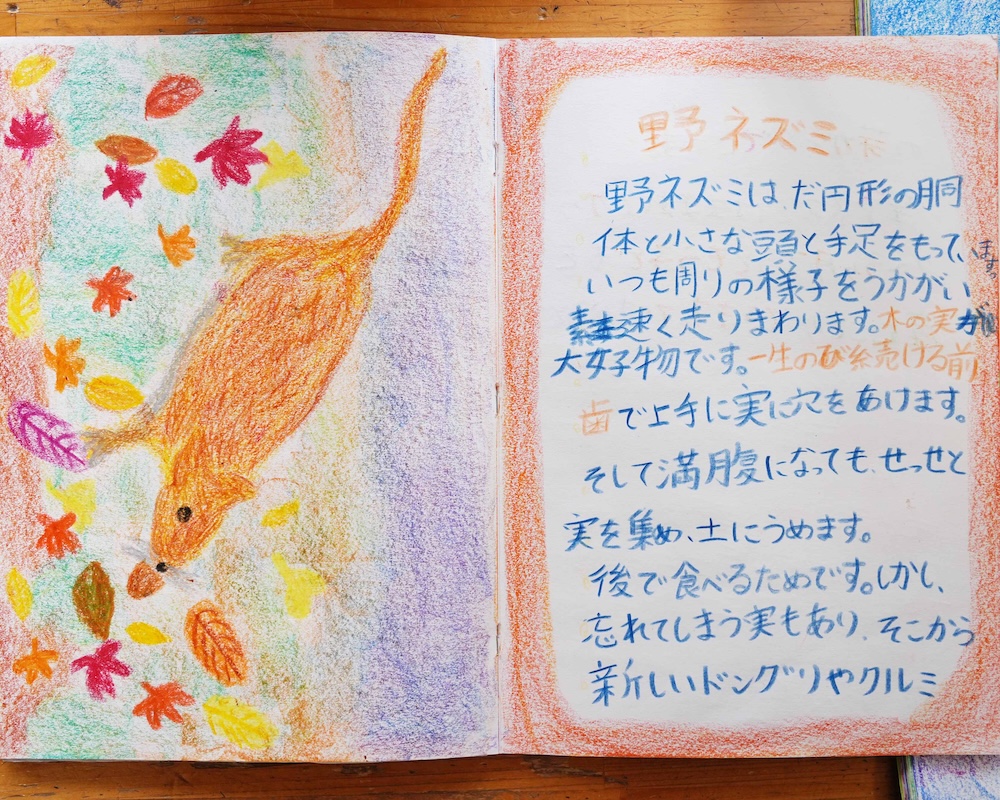 野ネズミ
野ネズミは、だ円形の胴
体と小さな頭と手足をもって、います。
いつも周りの様子をうかがい
素速く走りまわります。木の実が
大好物です。一生のび続ける前
歯で上手に実に穴をあけます。
そして満腹になっても、せっせと
実を集め、土にうめます。
後で食べるためです。しかし、
忘れてしまう実もあり、そこから
新しいドングリやクルミ